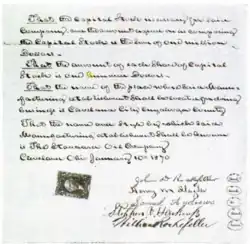 That the Capital Stock necessary for said
Company and the amount agreed on as comprising
the Capital Stock is the sum of One million
Dollars.
That the amount of each Share of Capital
Stock is One Hundred Dollars.
That the name of the place where said Manu-
facturing establishment shall be located for doing
business is Cleveland City Cuyahoga County
That the name and Style by which said
Manufacturing establishment shall be known
is The Standard Oil Company
Cleveland Ohio January 10th 1870
John D Rockefeller
Henry M Flagler
Samuel Andrews
Stephen V Harkness
William Rockefeller